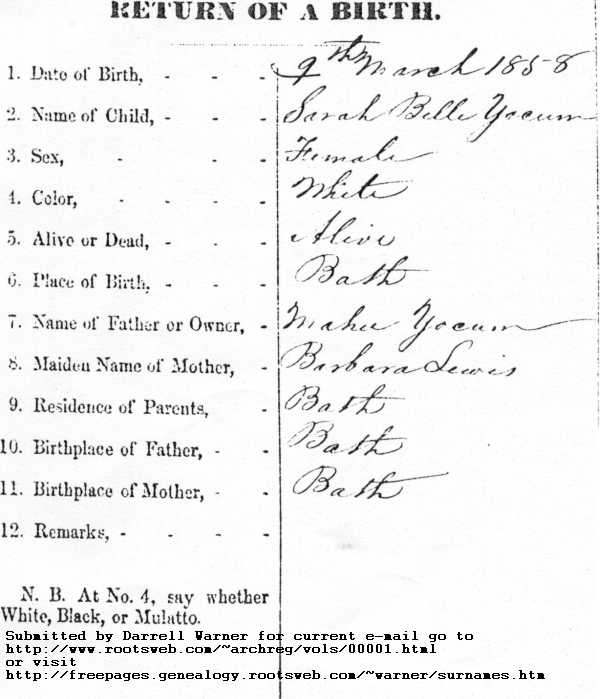 RETURN OF A BIRTH.
1. Date of Birth, - - - 9th March 1858
2. Name of Child, - - - Sarah Belle Yocum
3. Sex, - - - Female
4. Color, - - - - White
5. Alive or Dead, - - - Alive
6. Place of Birth, - - - Bath
7. Name of Father or Owner, - Yocum
8. Maiden Name of Mother, - Barbara Lewis
9. Residence of Parents, - Bath
10. Birthplace of Father, - - Bath
11. Birthplace of Mother, - - Bath
12. Remarks, - - - -
N. B. At No. 4, say whether
White, Black, or Mulatto.
Submitted by Darrell Warner for current e-mail go to
http://www.rootsweb.com/~archreg/vols/00001.html
or visit
http://freepages.genealogy.rootsweb.com/~warner/surnames.htm